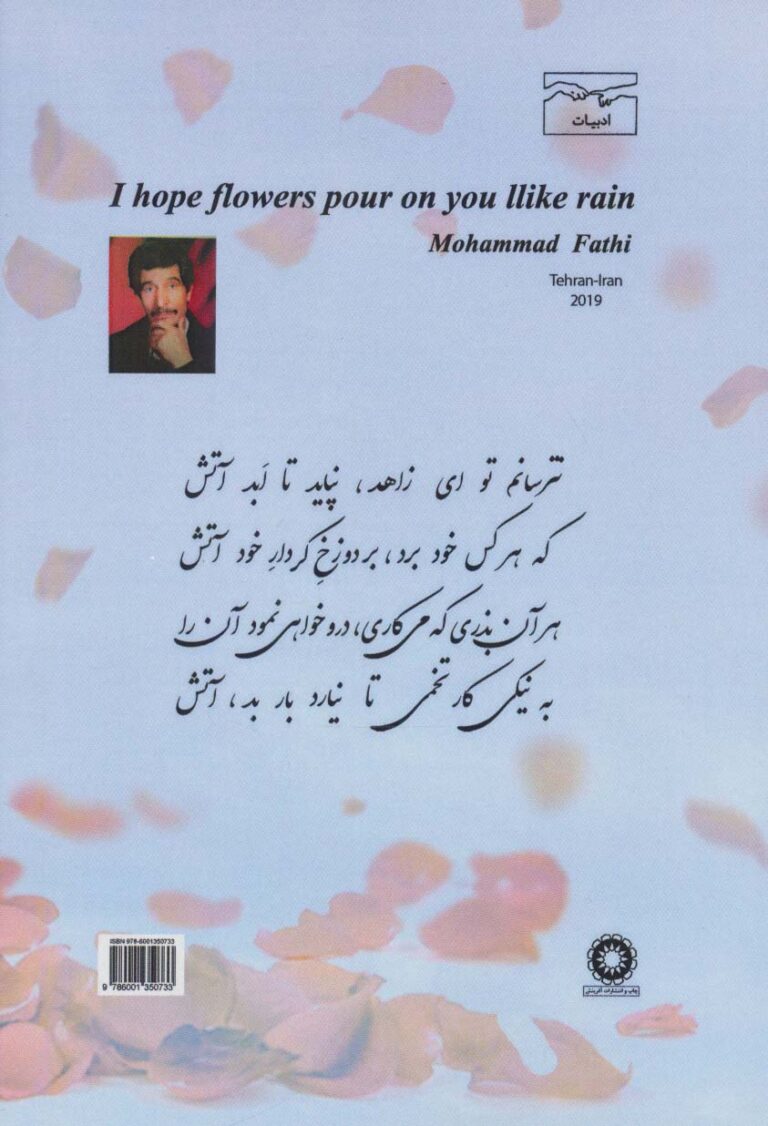 ادبیات
I hope flowers pour on you llike rain
Mohammad Fathi
Tehran-Iran
2019
نترسانم تو ای زاهد، نپاید تا اَبد آتش
که هر کس خود برد، بر دوزخِ کردارِ خود آتش
هر آن بذری که می کاری، درو خواهی نمود آن را
به نیکی کار تخمی تا نیارد بار بد، آتش
ISBN 978-6001350733
9 786001 350733
چاپ و انتشارات آفرینش